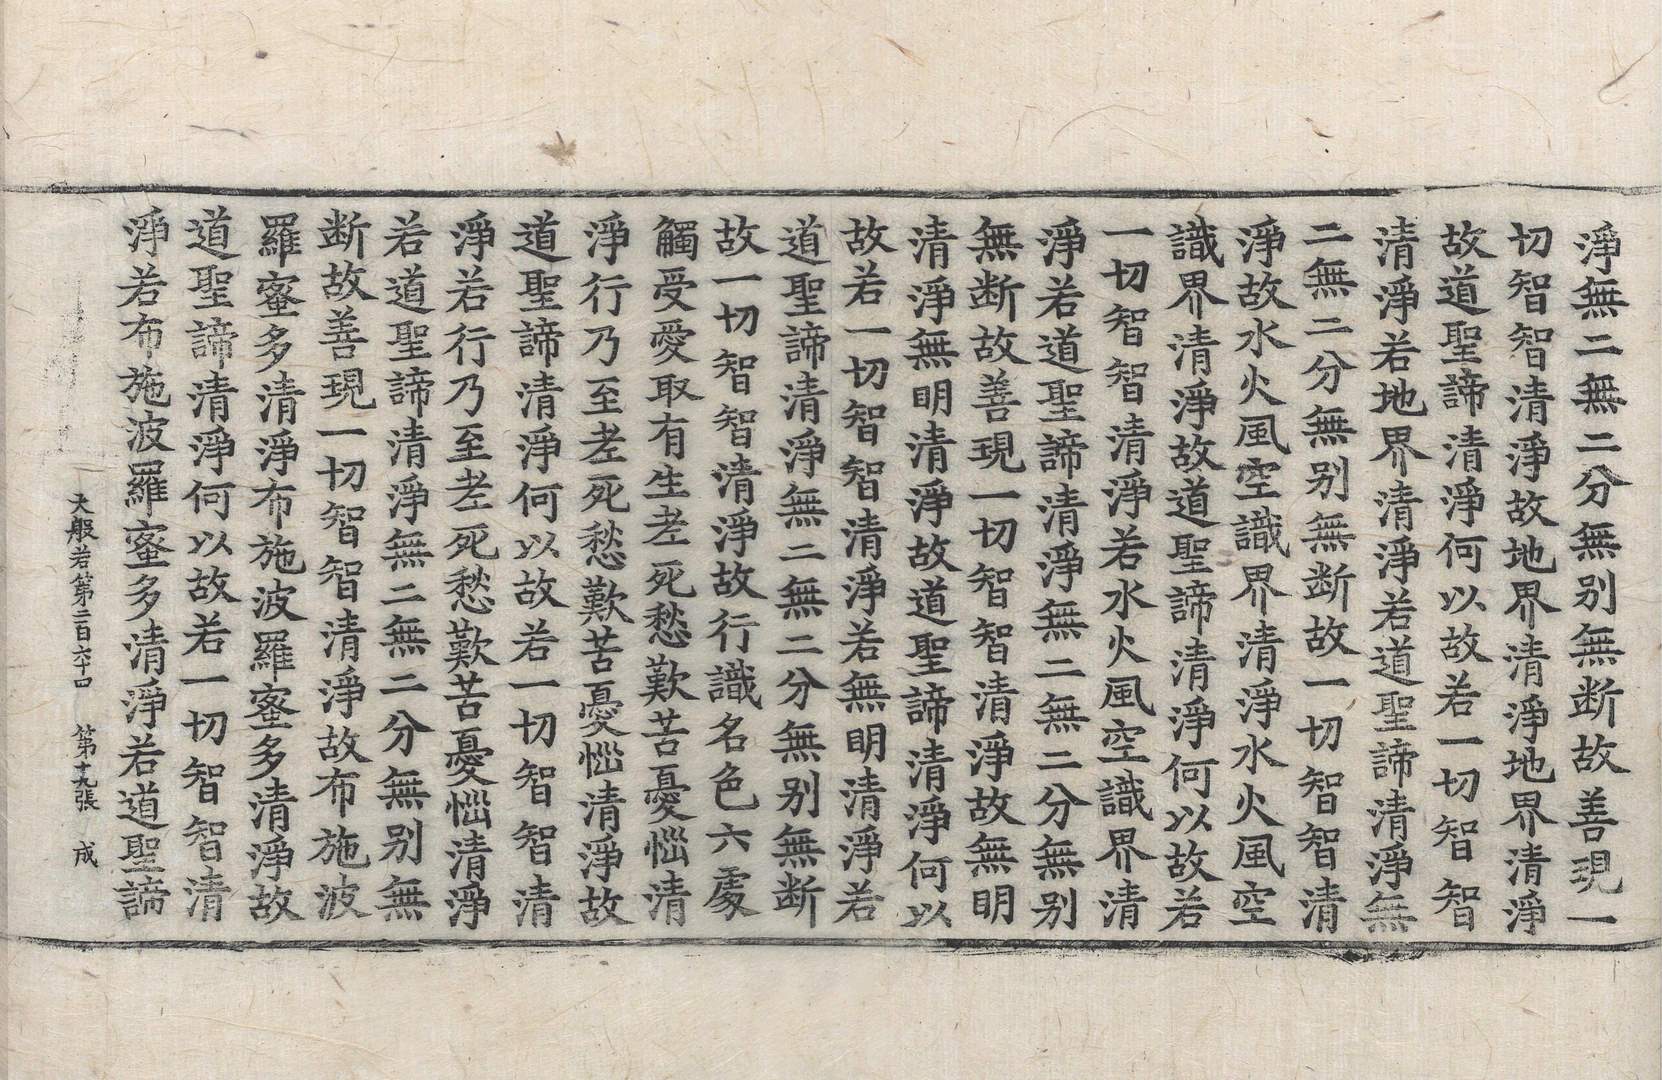 淨無二無二分無别無断故善現一
切智智清淨故地界清淨地界清淨
故道聖諦清淨何以故若一切智智
清淨若地界清淨若道聖諦清淨無
二無二分無别無断故一切智智清
淨故水火風空識界清淨水火風空
識界清淨故道聖諦清淨何以故若
一切智智清淨若水火風空識界清
淨若道聖諦清淨無二無二分無别
無断故善現一切智智清淨故無明
清淨無明清淨故道聖諦清淨何以
故若一切智智清淨若無明清淨若
道聖諦清淨無二無二分無别無断
故一切智智清淨故行識名色六處
觸受愛取有生老死愁歎苦憂惱清
淨行乃至老死愁歎苦憂惱清淨故
道聖諦清淨何以故若一切智智清
淨若行乃至老死愁歎苦憂惱清淨
若道聖諦清淨無二無二分無别無
断故善現一切智智清淨故布施波
羅蜜多清淨布施波羅蜜多清淨故
道聖諦清淨何以故若一切智智清
淨若布施波羅蜜多清淨若道聖諦
大般若第二百六十四 第十九張 成